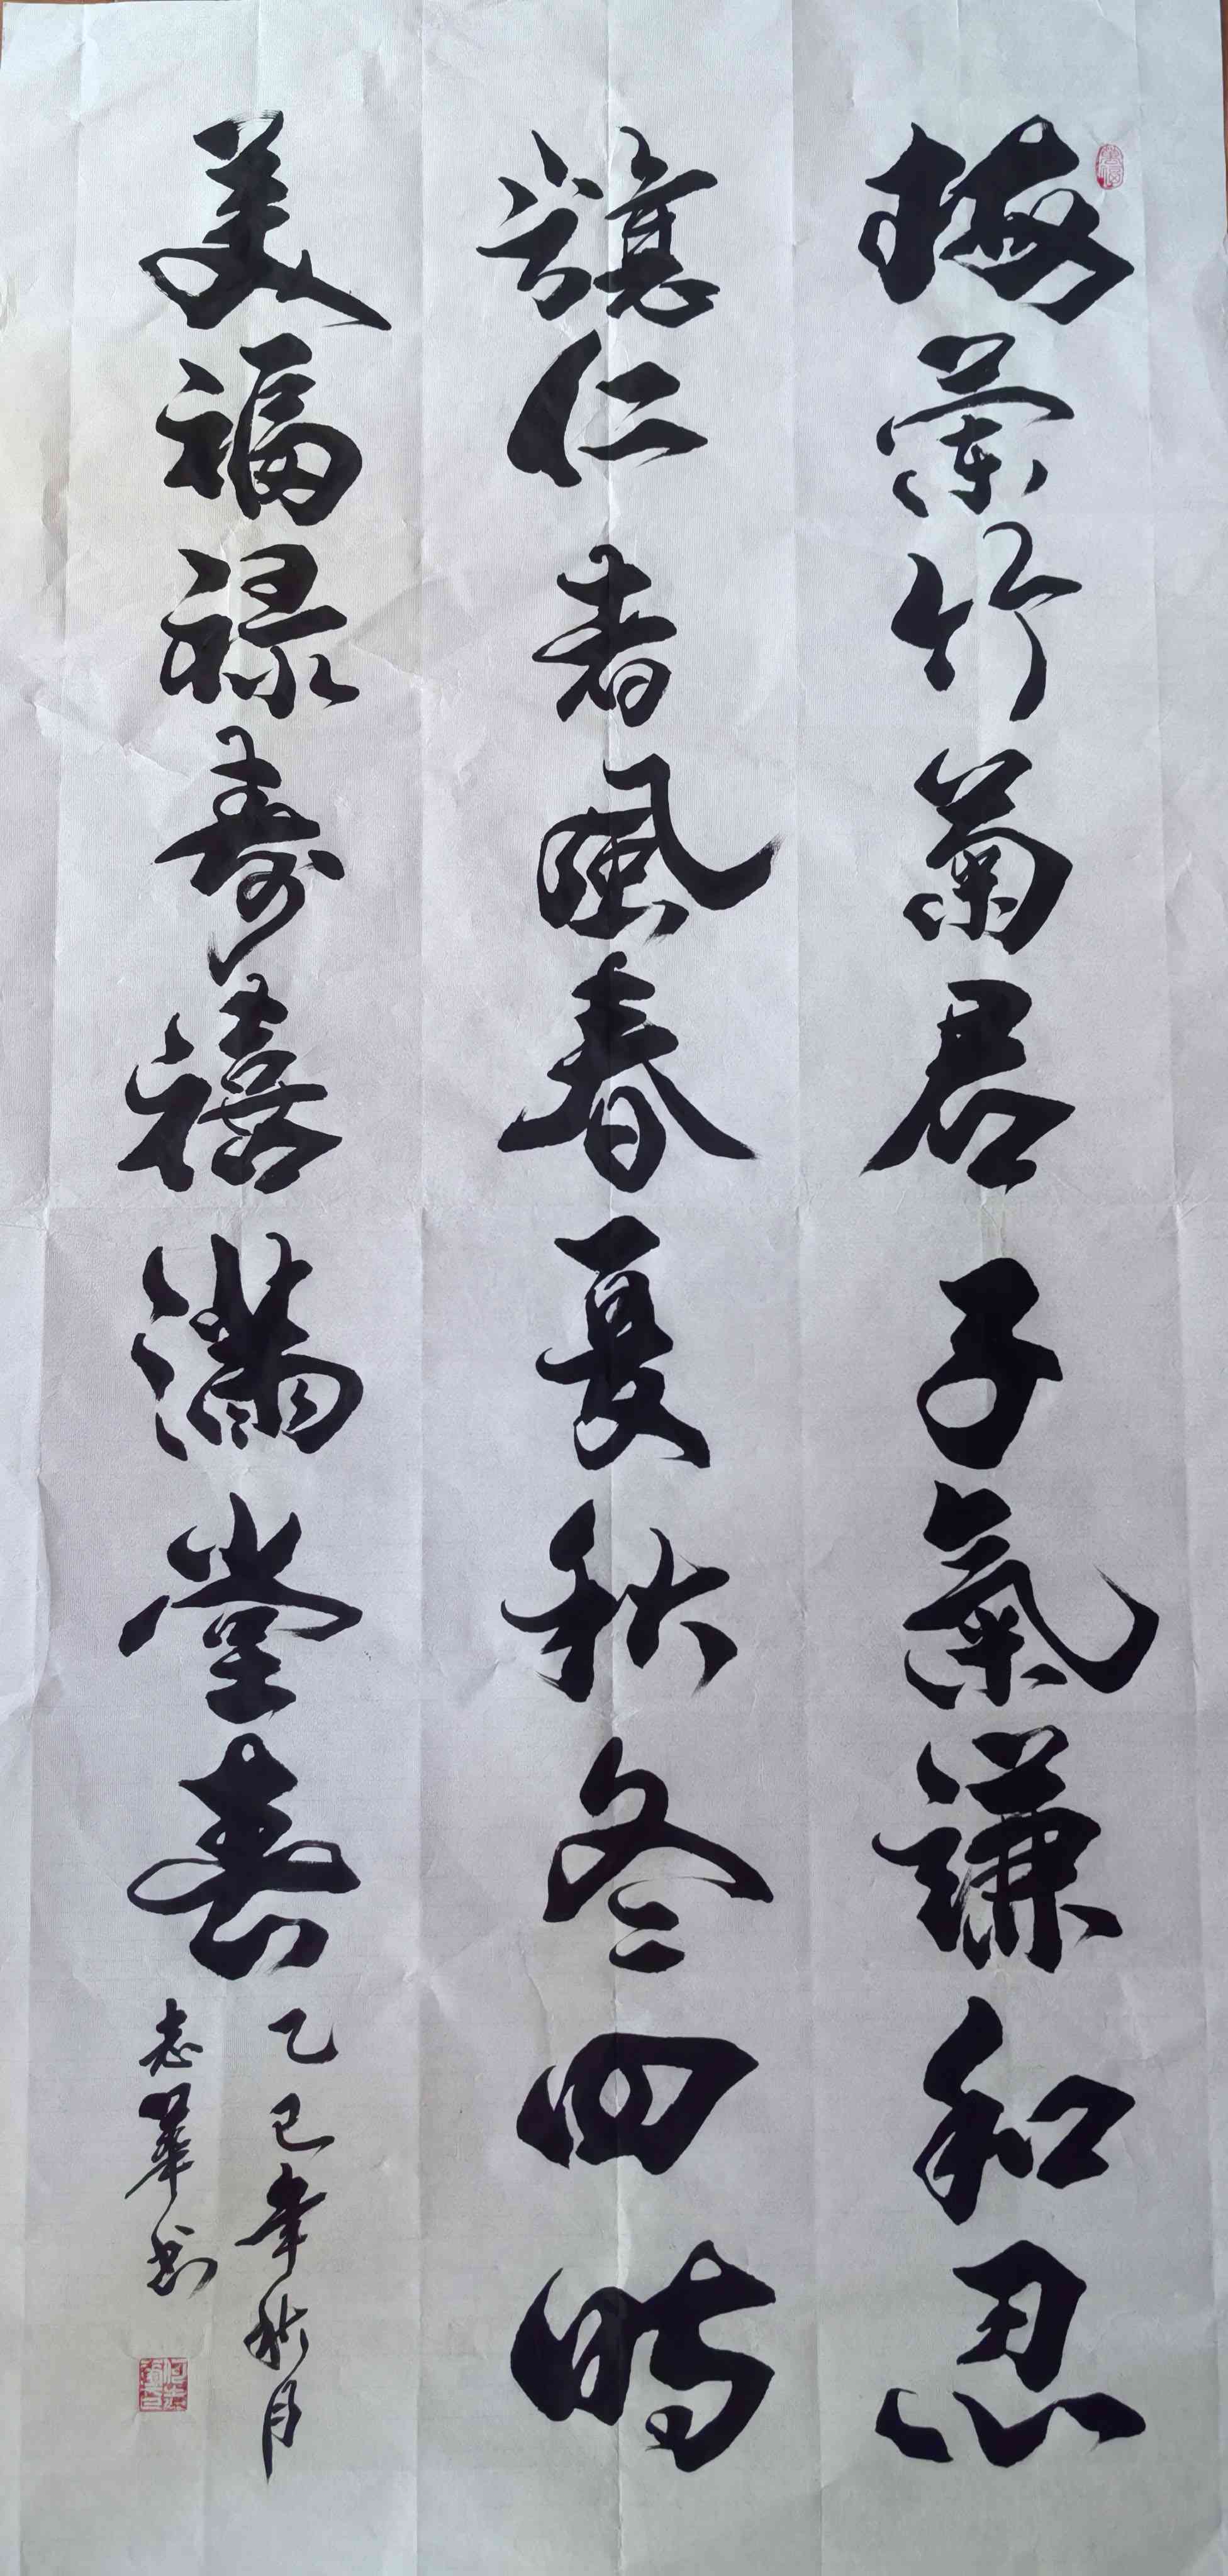 梅蘭竹菊君子氣謙和忍
讓仁者風春夏秋冬四時
美福禄寿禧满堂喜
乙巳年秋月
志華书